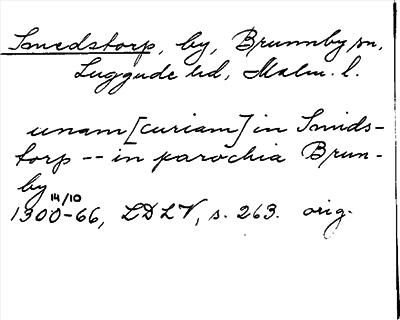 Smedstorp, by, Brunnby sn,
Luggude hd, Malm. l.
unam [curiam] in Smids-
torp -- in parochia Brun-
by
1300 14/10 -66, LDLV, s. 263. orig.